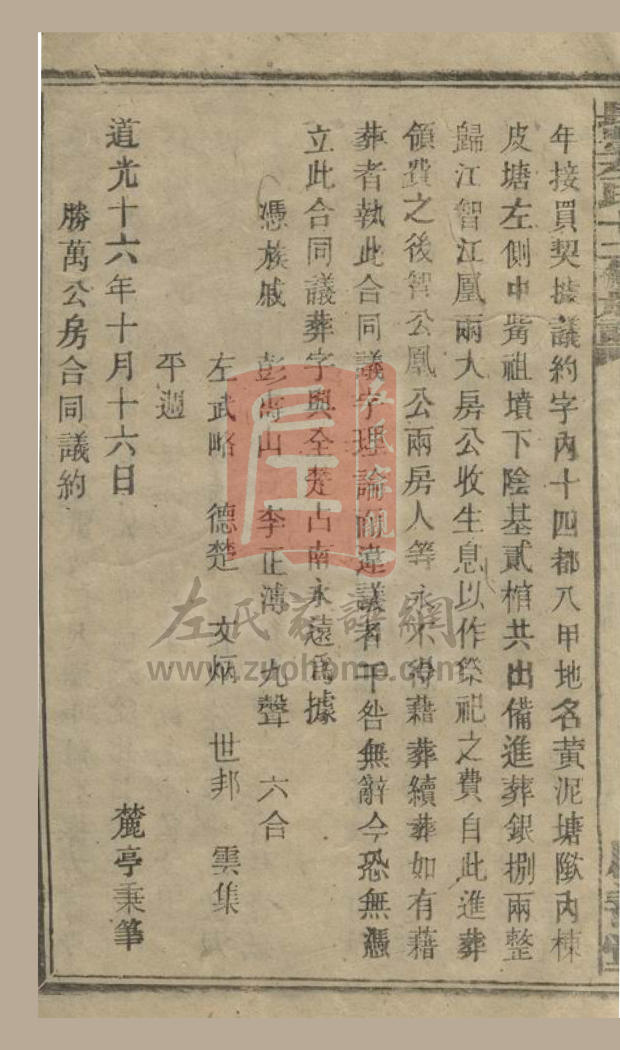 年接買契據議約字內十四都八甲地名黃泥塘歐內棟
皮塘左側中嘴祖墳下陰基貳棺共出備進葬銀捌兩整
歸江智江凰兩大房公收生息以作祭祀之費自此進葬
領費之後智公凰公兩房人等永不得藉葬續葬如有藉
葬者執此合同議字理論倘違議者干咎無辭今恐無憑
立此合同議葬字與全楚占南永遠爲據
憑族戚 彭壽山 李正溥 九聲 六合
左武略 德楚 文炳 世邦 雲集
平週
道光十六年十月十六日 麓亭秉筆
勝萬公房合同議約
左氏族譜網
www.zuohome.com